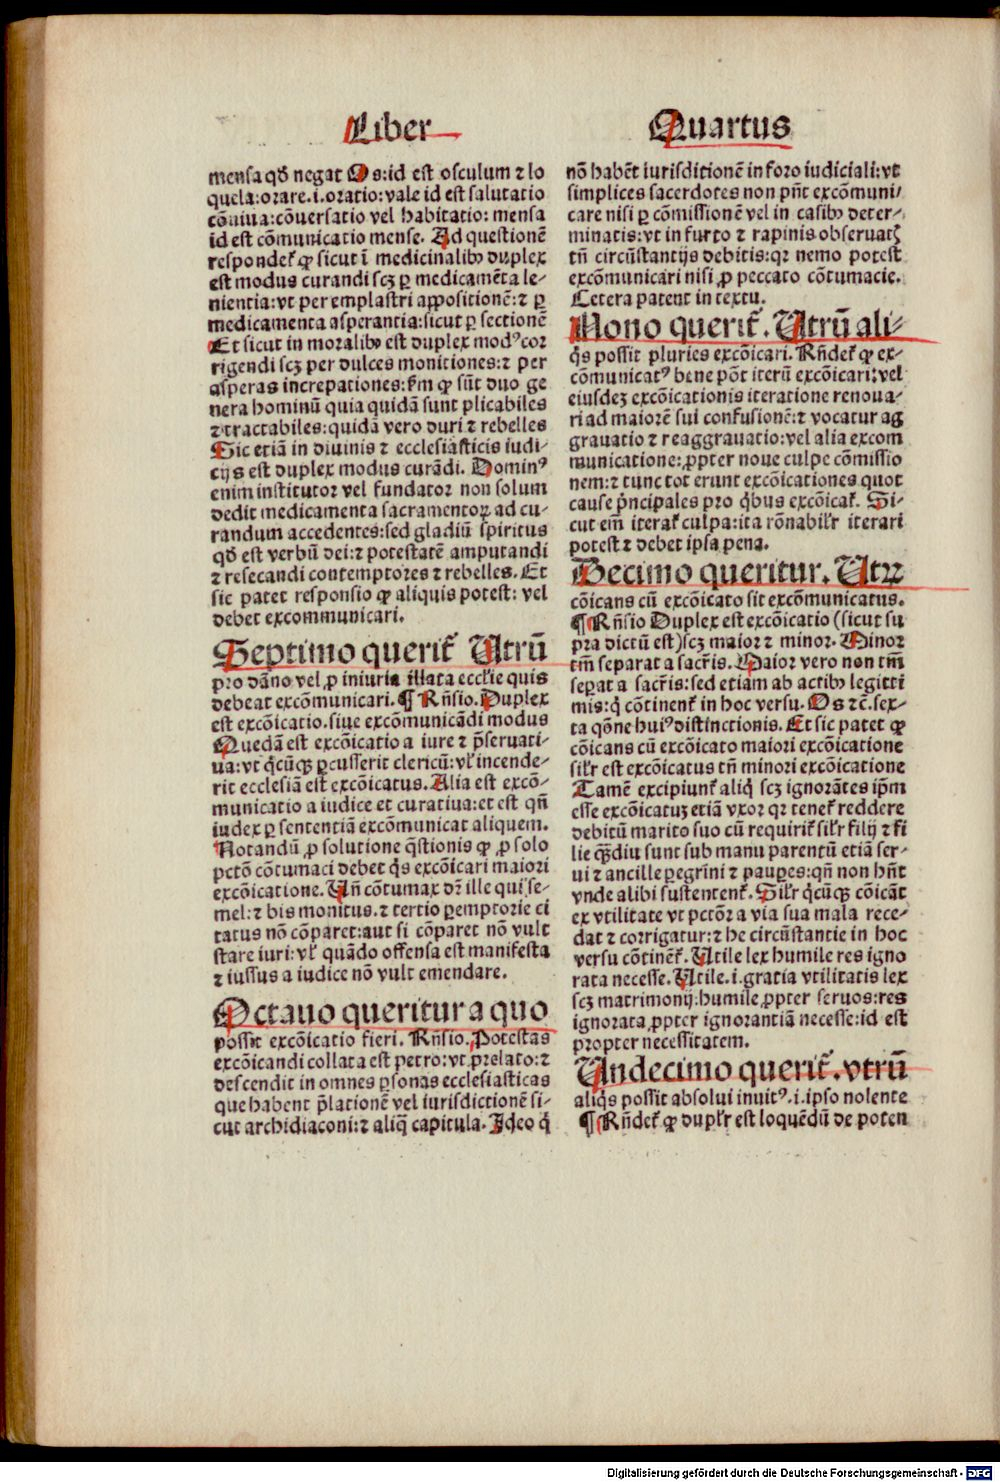 Liber
Quartus
mensa qđ negat Os:id est osculum ⁊ lo
quela:orare.i.oratio:vale id est salutatio
cōuiua:cōuersatio vel habitatio: mensa
id est cōmunicatio mense. Ad questionē
respondeť ꝙ sicut ī medicinalibꝰ duplex
est modus curandi scꝫ ꝑ medicamēta le-
nientia:vt per emplastri appositionē:⁊ ꝑ
medicamenta asperantia:sicut ꝑ sectionē
Et sicut in moralibꝰ est duplex modꝰ cor
rigendi scꝫ per dulces monitiones:⁊ per
asperas increpationes:ẜm ꝙ sūt duo ge
nera hominū quia quidā sunt plicabiles
⁊ tractabiles:quidā vero duri ⁊ rebelles
Sic etiā in diuinis ⁊ ecclesiasticis iudi-
cijs est duplex modus curādi. Dominꝰ
enim institutor vel fundator non solum
dedit medicamenta sacramentoꝝ ad cu-
randum accedentes:sed gladiū spiritus
qđ est verbū dei:⁊ potestatē amputandi
⁊ resecandi contemptores ⁊ rebelles. Et
sic patet responsio ꝙ aliquis potest: vel
debet excommunicari.
Septimo queriť Utrū
pro dāno vel ꝓ iniuria illata eccľie quis
debeat excōmunicari. ¶ Rn̄sio. Duplex
est excōicatio. siue excōmunicādi modus
Quedā est excōicatio a iure ⁊ p̄seruati-
ua:vt q̇cūqꝫ ꝑcusserit clericū:vľ incende-
rit ecclesiā est excōicatus. Alia est excō-
municatio a iudice et curatiua:et est qn̄
iudex ꝑ sententiā excōmunicat aliquem.
Notandū ꝓ solutione q̄stionis ꝙ ꝓ solo
pctō cōtumaci debet q̇s excōicari maiori
excōicatione. Un̄ cōtumax dꝛ̄ ille qui se-
mel:⁊ bis monitus.⁊ tertio ꝑemptorie ci
tatus nō cōparet:aut si cōparet nō vult
stare iuri:vľ quādo offensa est manifesta
⁊ iussus a iudice nō vult emendare.
Octauo queritur a quo
possit excōicatio fieri. Rn̄sio. Potestas
excōicandi collata est petro:vt prelato:⁊
descendit in omnes ꝑsonas ecclesiasticas
que habent p̄lationē vel iurisdictionē si-
cut archidiaconi:⁊ aliq̄ capitula. Ideo q̇
nō habēt iurisditionē in foro iudiciali:vt
simplices sacerdotes non pn̄t excōmuni-
care nisi ꝑ cōmissionē vel in casibꝰ deter-
minatis:vt in furto ⁊ rapinis obseruatꝭ
tn̄ circūstantijs debitis:qꝛ nemo potest
excōmunicari nisi ꝓ peccato cōtumacie.
Cetera patent in textu.
Nono queriť. Utrū ali-
q̇s possit pluries excōicari. Rn̄deť ꝙ ex-
cōmunicatꝰ bene pōt iterū excōicari:vel
eiusdeꝫ excōicationis iteratione renoua-
ri ad maiorē sui confusionē:⁊ vocatur ag
grauatio ⁊ reaggrauatio:vel alia excom
municatione: ꝓpter noue culpe cōmissio
nem:⁊ tunc tot erunt excōicationes quot
cause pńcipales pro q̇bus excōicať. Si-
cut em̄ iterať culpa:ita rōnabiľr iterari
potest ⁊ debet ipsa pena.
Decimo queritur. Utrꝝ
cōicans cū excōicato sit excōmunicatus.
¶ Rn̄sio Duplex est excōicatio (sicut su
pra dictū est)scꝫ maior ⁊ minor. Minor
tm̄ separat a sacr̄is. Maior vero non tm̄
seꝑat a sacr̄is:sed etiam ab actibꝰ legitti
mis:q̇ cōtinenť in hoc versu. Os ⁊c̄.sex-
ta qōne huiꝰ distinctionis. Et sic patet ꝙ
cōicans cū excōicato maiori excōicatione
siľr est excōicatus tn̄ minori excōicatione
Tamē excipiunť aliq̇ scꝫ ignorātes ip̄m
esse excōicatuꝫ etiā vxor qꝛ teneť reddere
debitū marito suo cū requiriť siľr filij ⁊ fi
lie qȝdiu sunt sub manu parentū etiā ser-
ui ⁊ ancille peregrini ⁊ pauꝑes:qn̄ non hn̄t
vnde alibi sustentenť. Siľr q̇cūqꝫ cōicāt
ex vtilitate vt pctōꝛ a via sua mala rece-
dat ⁊ corrigatur:⁊ he circūstantie in hoc
versu cōtinenť. Utile lex humile res igno
rata necesse. Utile.i.gratia vtilitatis lex
scꝫ matrimonij:humile ꝓpter seruos:res
ignorata ꝓpter ignorantiā necesse:id est
propter necessitatem.
Undecimo queriť. vtrū
aliq̇s possit absolui inuitꝰ.i.ipso nolente
¶ Rn̄deť ꝙ dupľr est loquēdū de poten
Digitalisierung gefördert durch die Deutsche Forschungsgemeinschaft - DFG